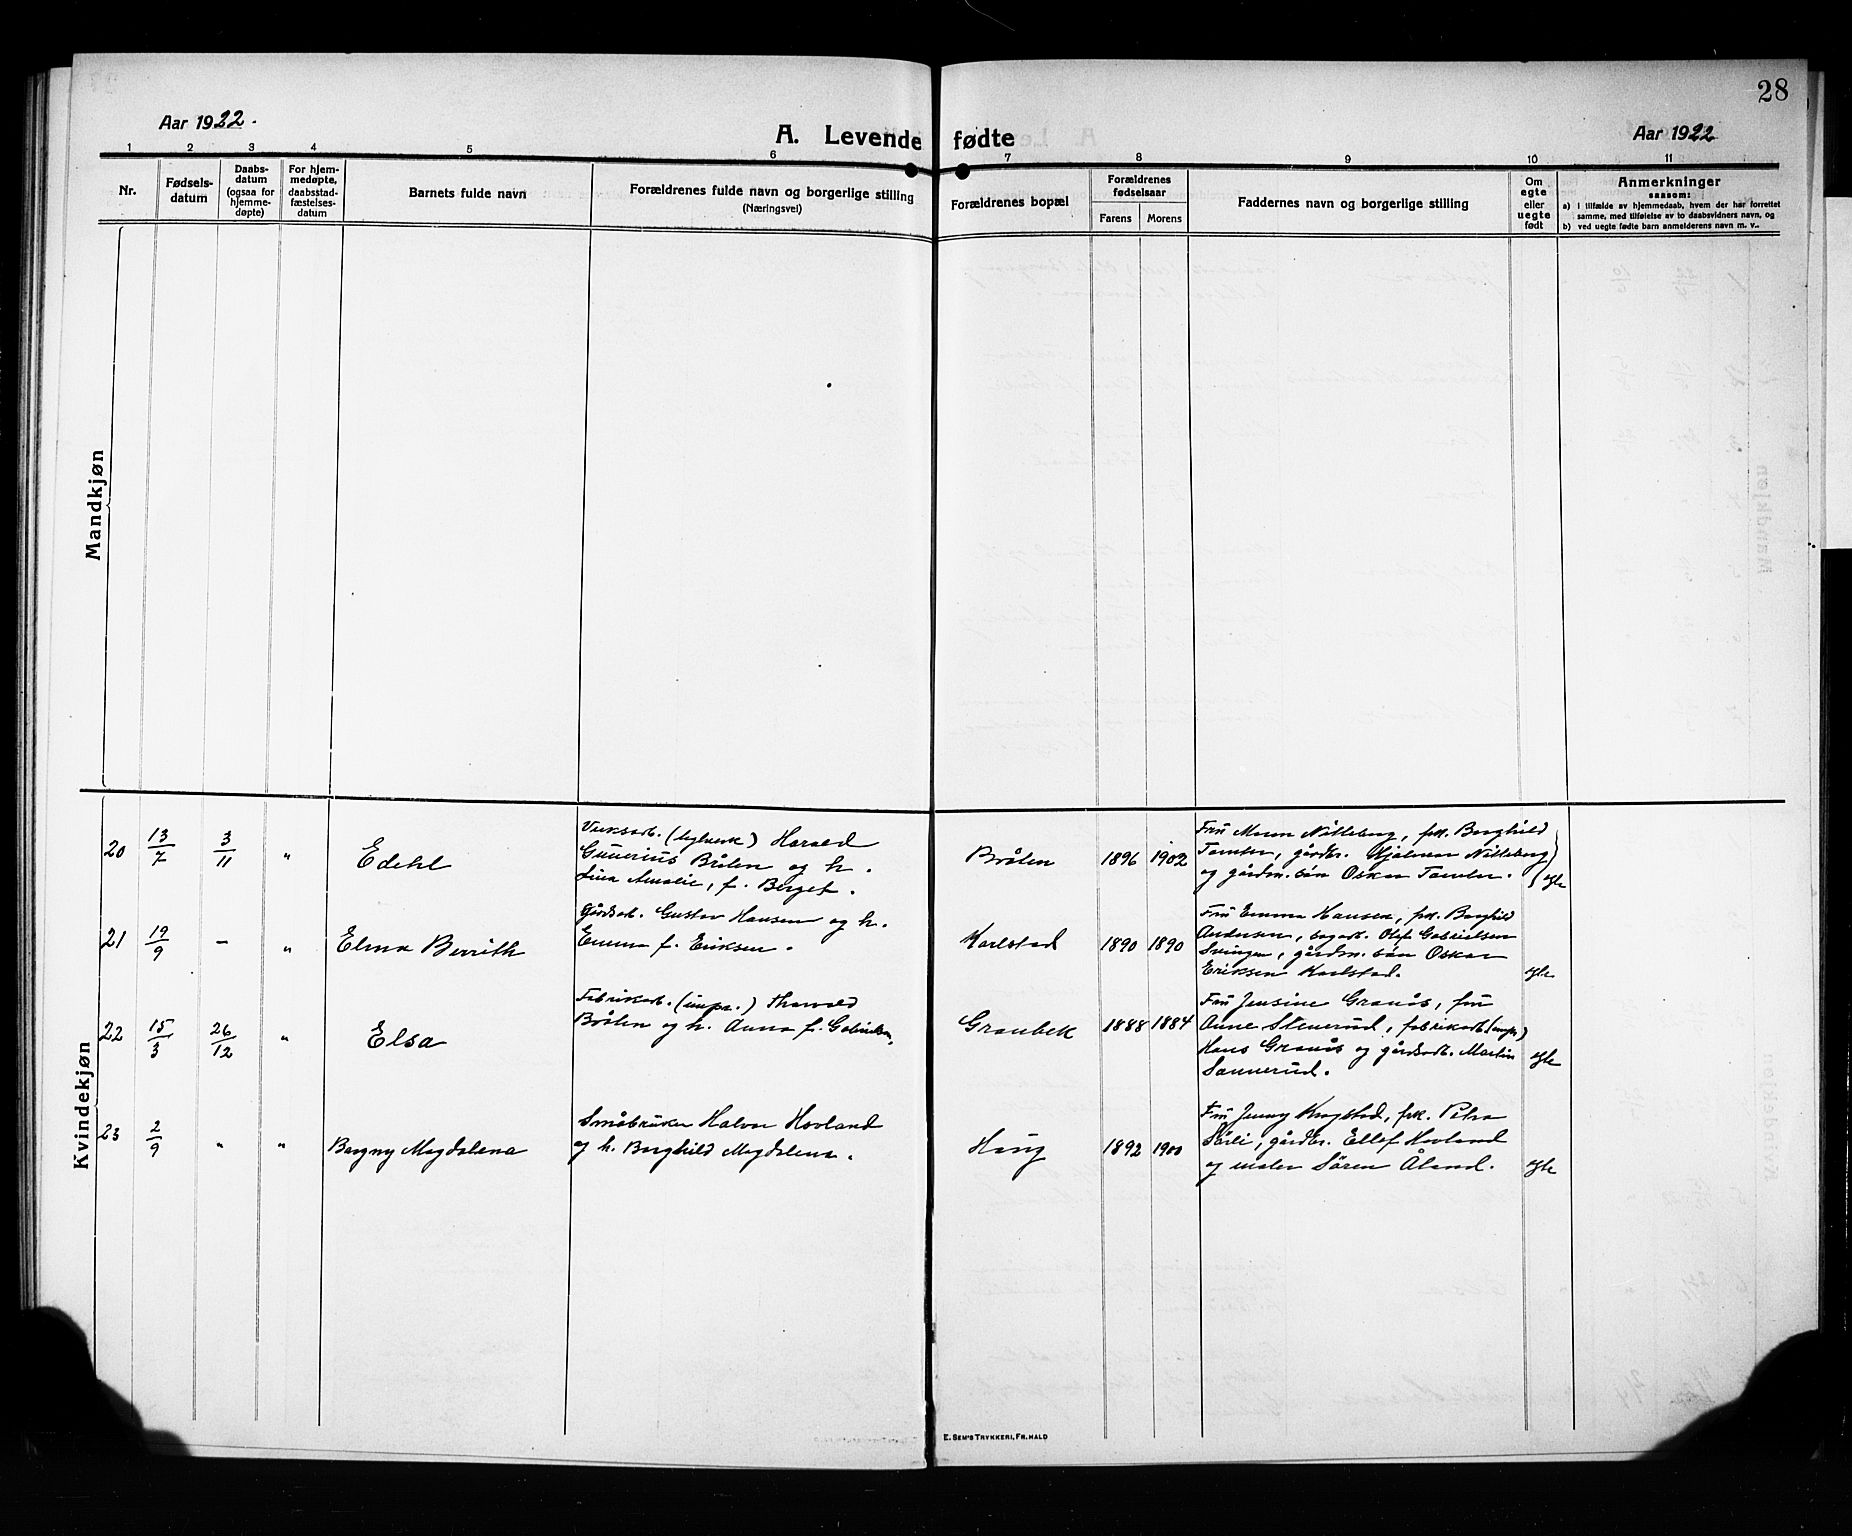 28
Aar 1922.
A. Levende fødte
Aar 1922
1 2 3 4 5 6 7 8 9 10 11
Nr.
Fødsels-
datum
Daabs-
datum
(ogsaa for
hjemme-
døpte)
For hjem-
medøpte,
daabsstad-
fæstelses-
datum
Barnets fulde navn
Forældrenes fulde navn og borgerlige stilling
(Næringsvei)
Forældrenes bopæl
Forældrenes
fødselsaar
Farens Morens
Faddernes navn og borgerlige stilling
Om
egte
eller
uegte
født
Anmerkninger
saasom:
a) i tilfælde av hjemmedaab, hvem der har forrettet
samme, med tilføielse av to daabsvidners navn, og
b) ved uegte fødte barn anmelderens navn m. v..
Mandkjøn
Kvindekjøn
20 13/7 3/11 " Edehl
Harald
Gunerius Bråten og h.
Lina Amalie, f. Berget.
Bråten 1896 1902
Fru Maren Nitteberg, frk. Borghild
Tomter, gårdbr. Hjalmar Nitteberg
og gårdm. søn Oskar Tomter.
egte
21 19/9 — " Elma Berrith
Gårdsarb. Gustav Hansen og h.
Emma f. Eriksen.
Karlstad 1890 1890
Fru Emma Hansen, frk. Borghild
Andersen, sagarb. Olaf Gabrielsen
Svingen, gårdm. søn Oskar
Eriksen Karlstad.
egte
22 15/3 26/12 " Elsa
Fabrikarb. (impr.) Thorvald
Bråten og h. Anna f. Gabrielsen.
Granbek 1888 1884
Fru Jensine Granås, fru
Anne Stenerud, fabrikarb. (impr.)
Hans Granås og gårdsarb. Martin
Sannerud.
egte
23 2/9 " " Borgny Magdalena
Småbruker Halvor Hovland
og h. Borghild Magdalena.
Haug 1892 1900
Fru Jenny Krogstad, frk. Petra
Sörli, gårdbr. Ellef Hovland
og maler Sören Åland.
egte
E. SEM'S TRYKKERI, FR.HALD